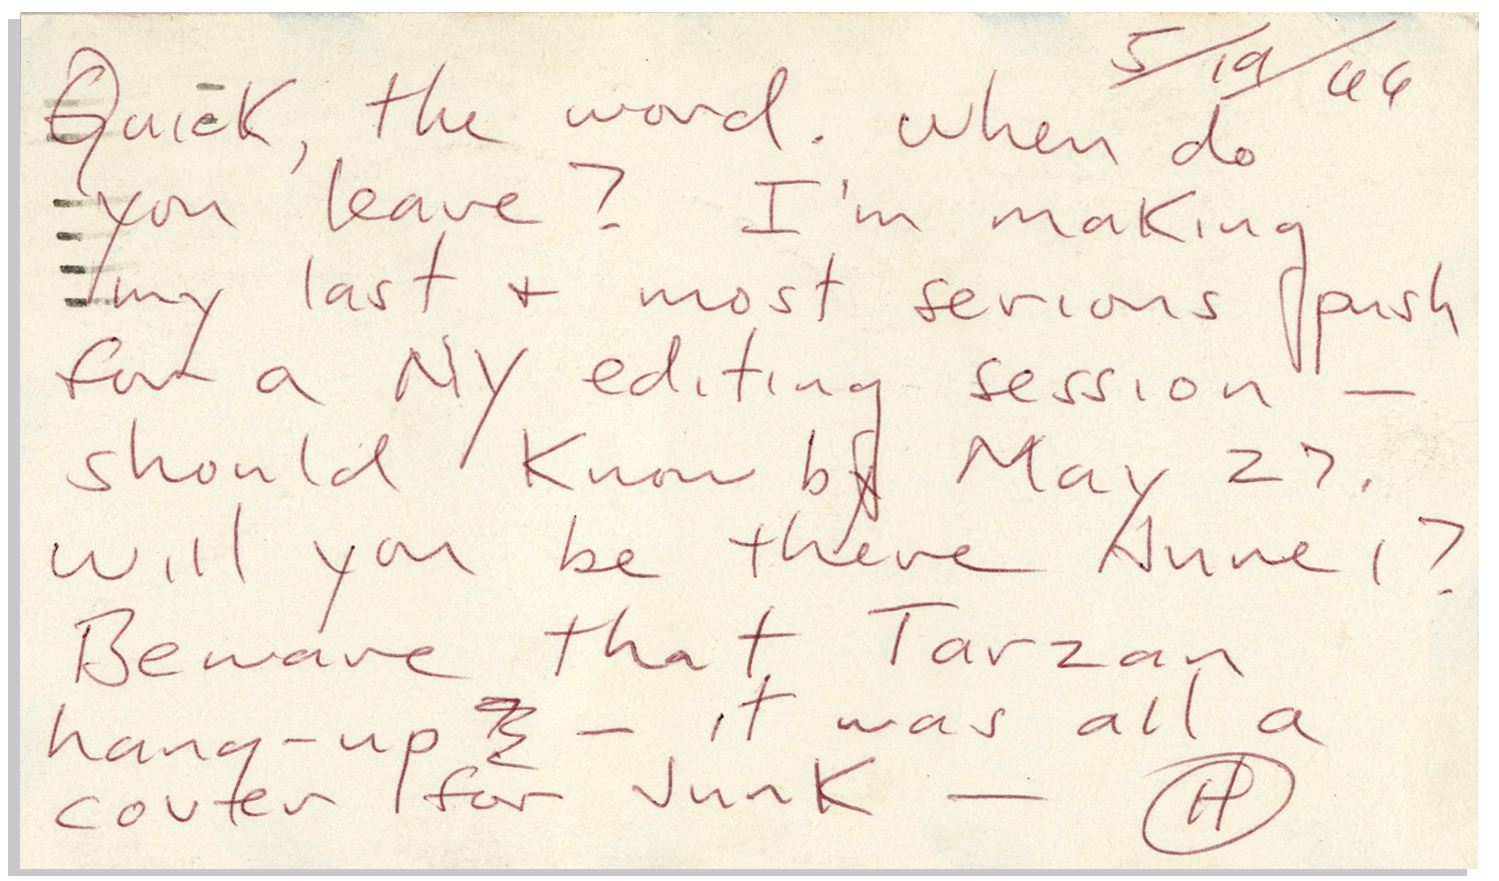 5/19/66
Quick, the word. When do
you leave? I'm making
my last + most serious push
for a NY editing session —
should know by May 27.
Will you be there June 1?
Beware that Tarzan
hang-up — it was all a
cover for junk — H